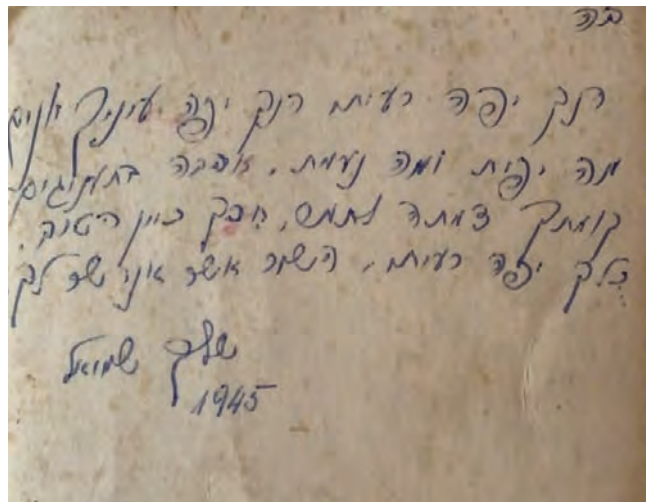 בה
הנך יפה רעיתי הנך יפה עיניך יונים
מה יפית ומה נעמת, אהבה בתענוגים
קומתך דמתה לתמר, חכך כיין הטוב,
כלך יפה רעיתי, השיר אשר אני שר לך
שלך שמואל
1945